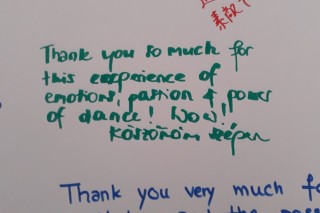 Thank you so much for
this experience of
emotions, passion & power
of dance! Wow!
Köszönöm szépen
Thank you very much fo